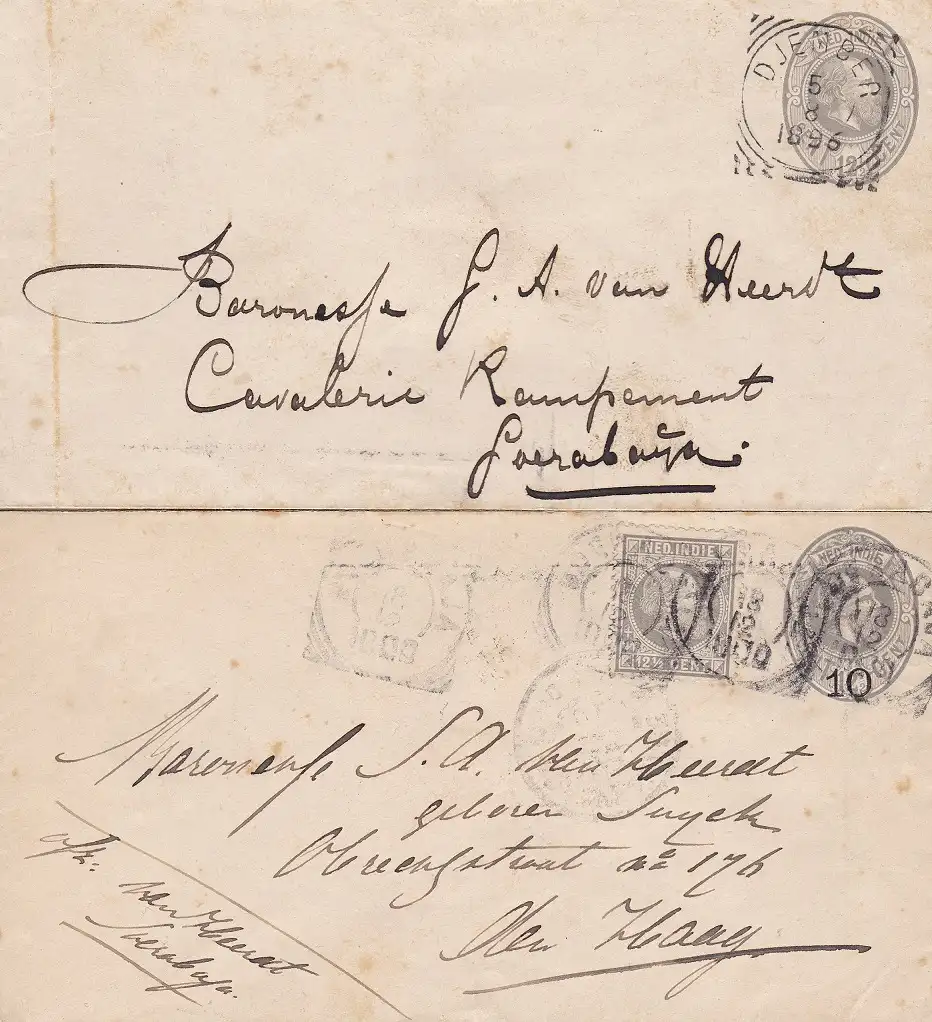 DJEMBER
5
8
1896
NED. INDIË
CENT
Baronesse J. A. van Heerdt
Cavalerie Kampement
Soerabaÿa.
NED. INDIE
12½ CENT
NED. INDIE
10
Baronesse S. A. van Heerdt
geboren Suyck
Obrechtstraat no 176
Den Haag
afz:
van Heerdt
Soerabaya.